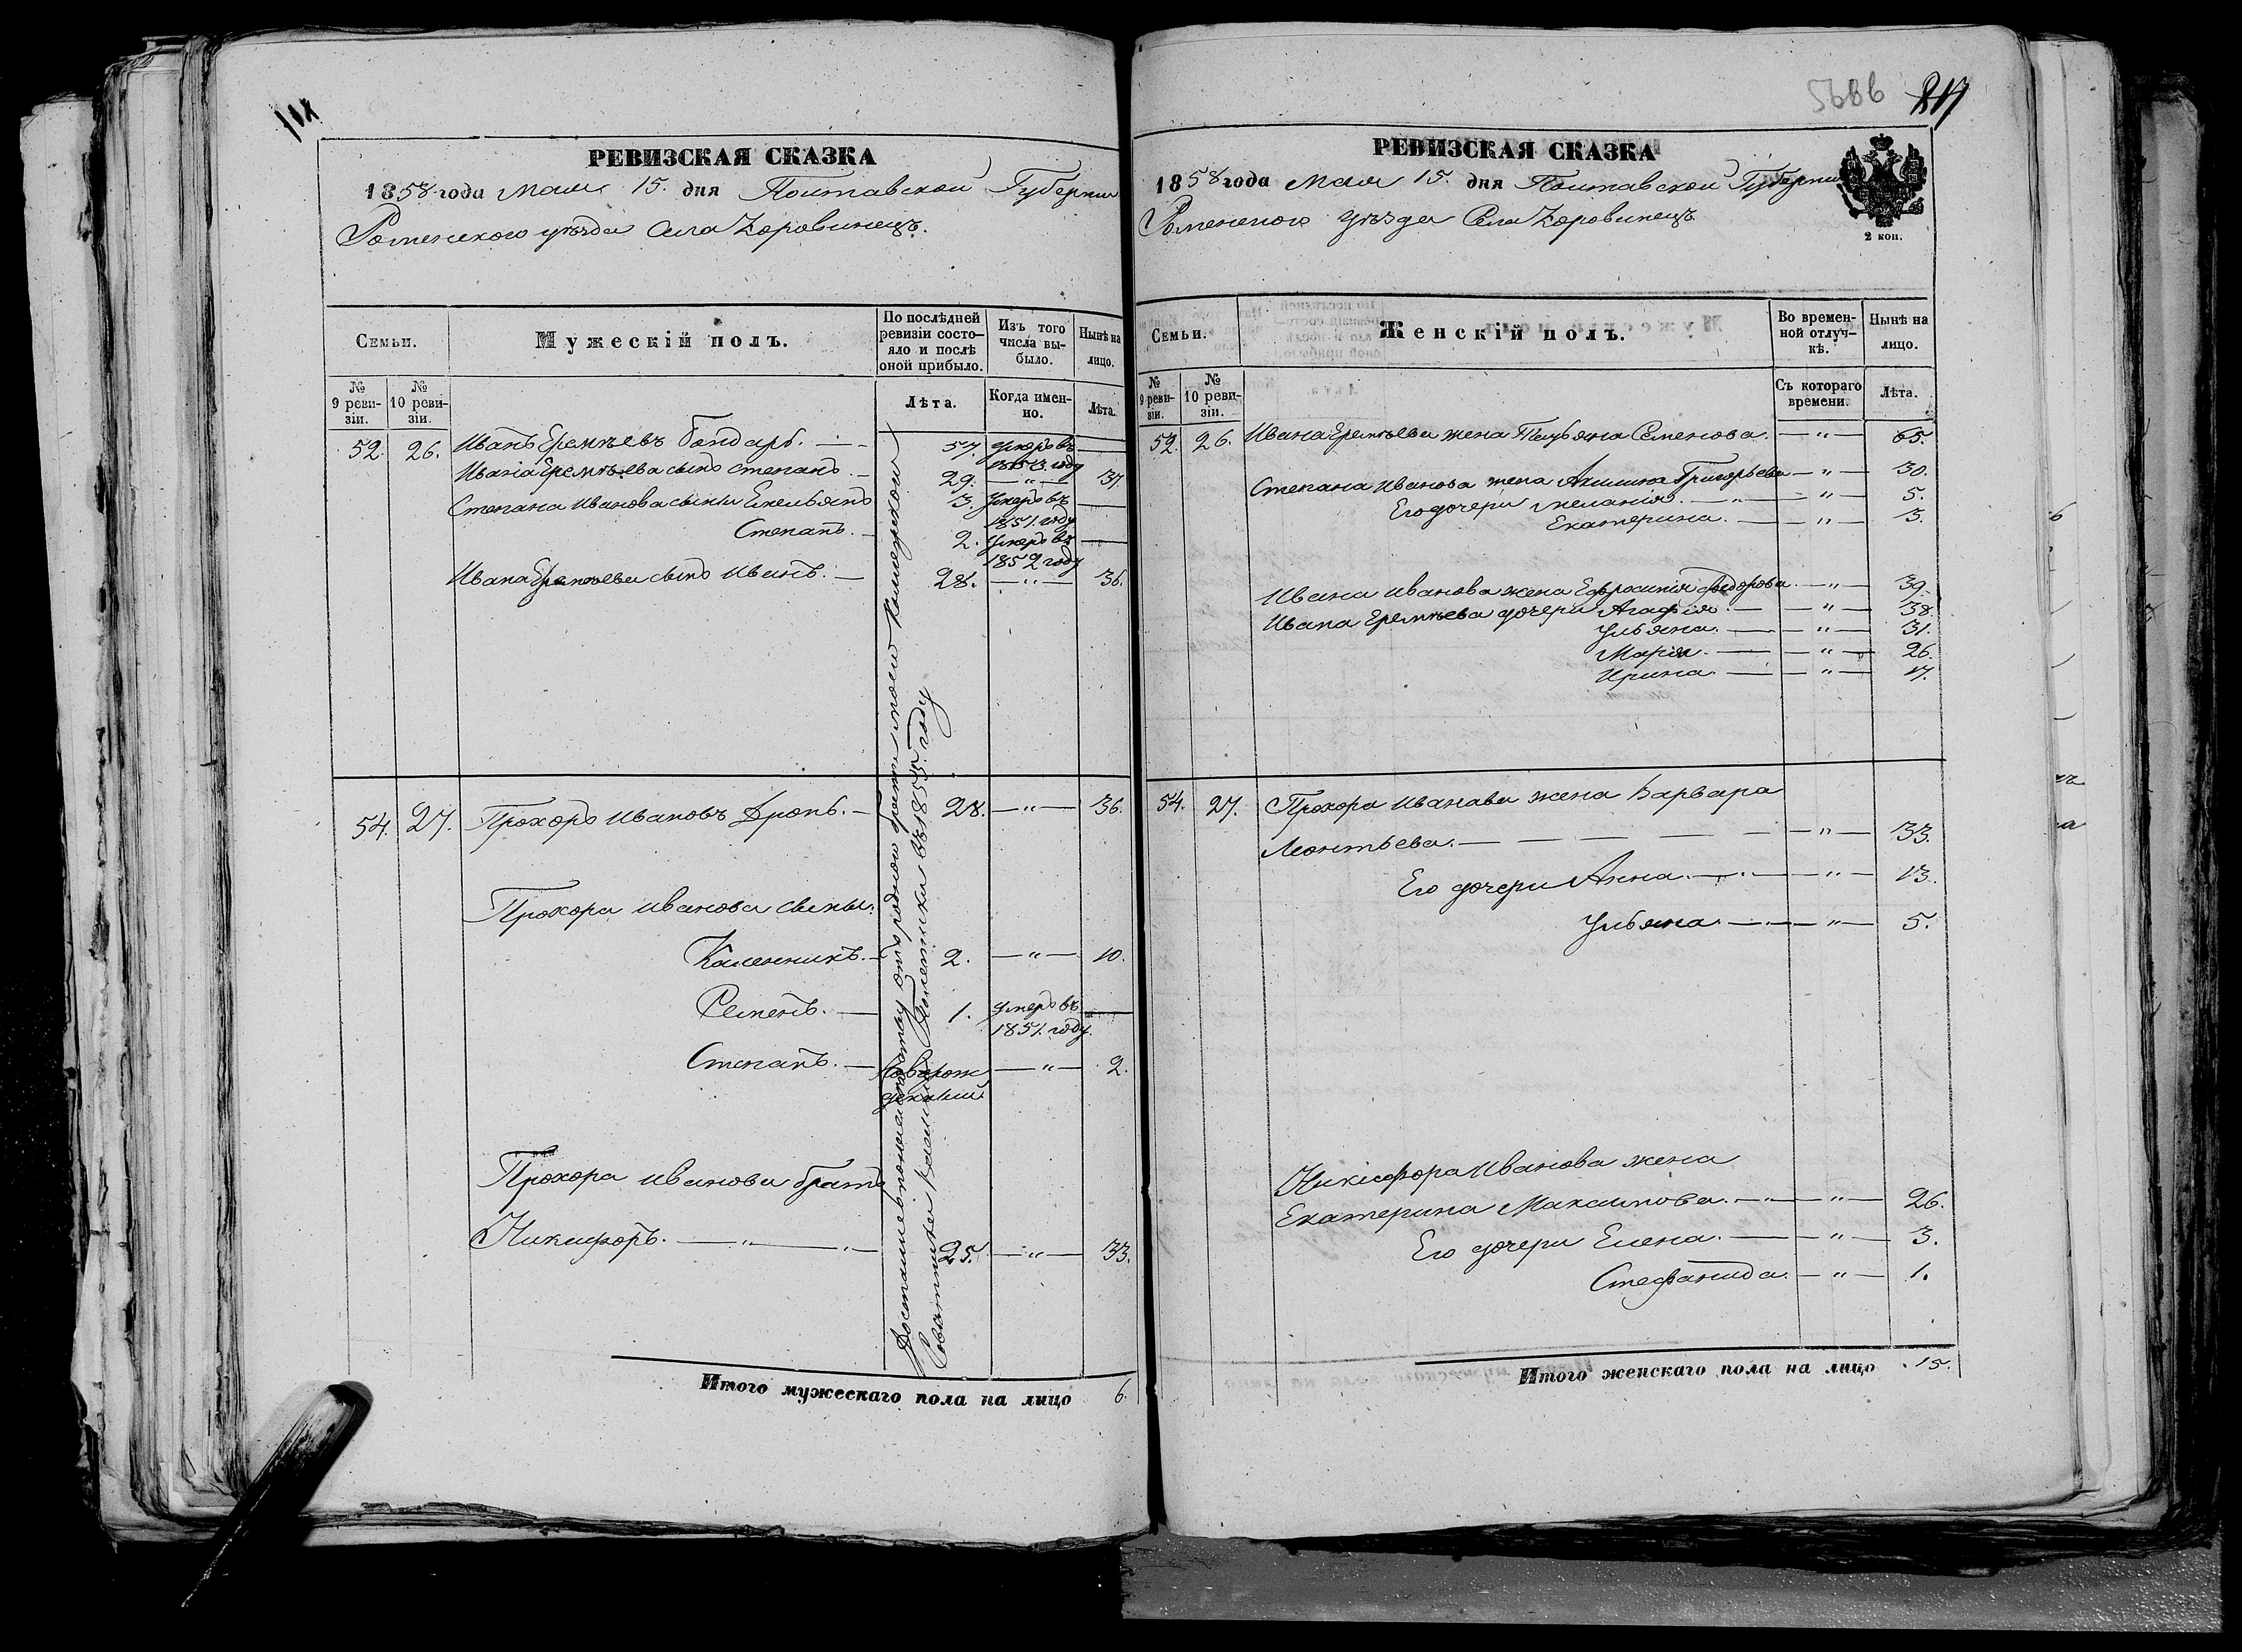 РЕВИЗСКАЯ СКАЗКА
1858 года Мая 15. дня Полтавской Губерніи
Роменского уѣзда села Коровинецъ.
Семьи.
Мужескій полъ.
По послѣдней ревизіи состояло и послѣ оной прибыло.
Изъ того числа выбыло.
Нынѣ на лицо.
№ 9 ревизіи.
№ 10 ревизіи.
Лѣта.
Когда именно.
Лѣта.
52. 26. Иванъ Еремѣевъ Бондарь. — 57. Умеръ въ 1853 году —
Ивана Еремѣева сынъ Степанъ — 29. — " — 37.
Степана Иванова сыны Емельянъ 3. Умеръ въ 1851. году —
Степанъ. — 2. Умеръ въ 1852 году —
Ивана Еремѣева сынъ Иванъ. — 28. — " — 36.
54. 27. Прохоръ Ивановъ Дронь. — 28. — " — 36.
Прохора Иванова сыны:
Каленникъ. — 2. — " — 10.
Семенъ. — 1. Умеръ въ 1851. году. —
Степанъ. — Новорожденный — " — 2.
Прохора Иванова братъ
Никифоръ. — " — " — 25. — " — 33.
Итого мужескаго пола на лицо 6.
Достались по
отъ родного брата моего
въ 1855. году
5686
РЕВИЗСКАЯ СКАЗКА
1858 года Мая 15. дня Полтавской Губерніи
Роменского уѣзда Села Коровинецъ
2 коп.
Семьи.
Женскій полъ.
Во временной отлучкѣ.
Нынѣ на лицо.
№ 9 ревизіи.
№ 10 ревизіи.
Съ котораго времени.
Лѣта.
52. 26. Ивана Еремѣева жена Татьяна Семенова. — " — 65.
Степана Иванова жена Акилина Григорьева — " — 30.
Его дочери Меланія. — " — 5.
Екатерина. — " — 3.
Ивана Иванова жена Евфросинія Федорова. — " — 39.
Ивана Еремѣева дочери Агафія. — " — 38.
Ульяна. — " — 31.
Марія. — " — 26.
Ирина. — " — 17.
54. 27. Прохора Иванова жена Варвара
Леонтьева. — — — — — " — 33.
Его дочери Анна. — " — 13.
Ульяна. — " — 5.
Никифора Иванова жена
Екатерина Максимова. — " — 26.
Его дочери Елена. — " — 3.
Стефанида. — " — 1.
Итого женскаго пола на лицо 15.